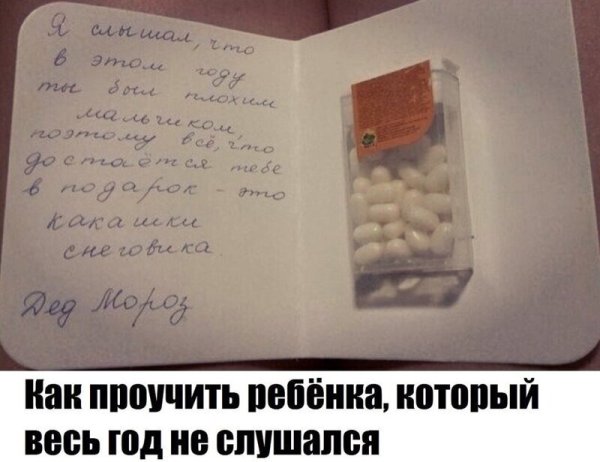 Я слышал, что
в этом году
ты был плохим
мальчиком,
поэтому всё, что
достаётся тебе
в подарок - это
какашки
снеговика
Дед Мороз
Как проучить ребёнка, который
весь год не слушался